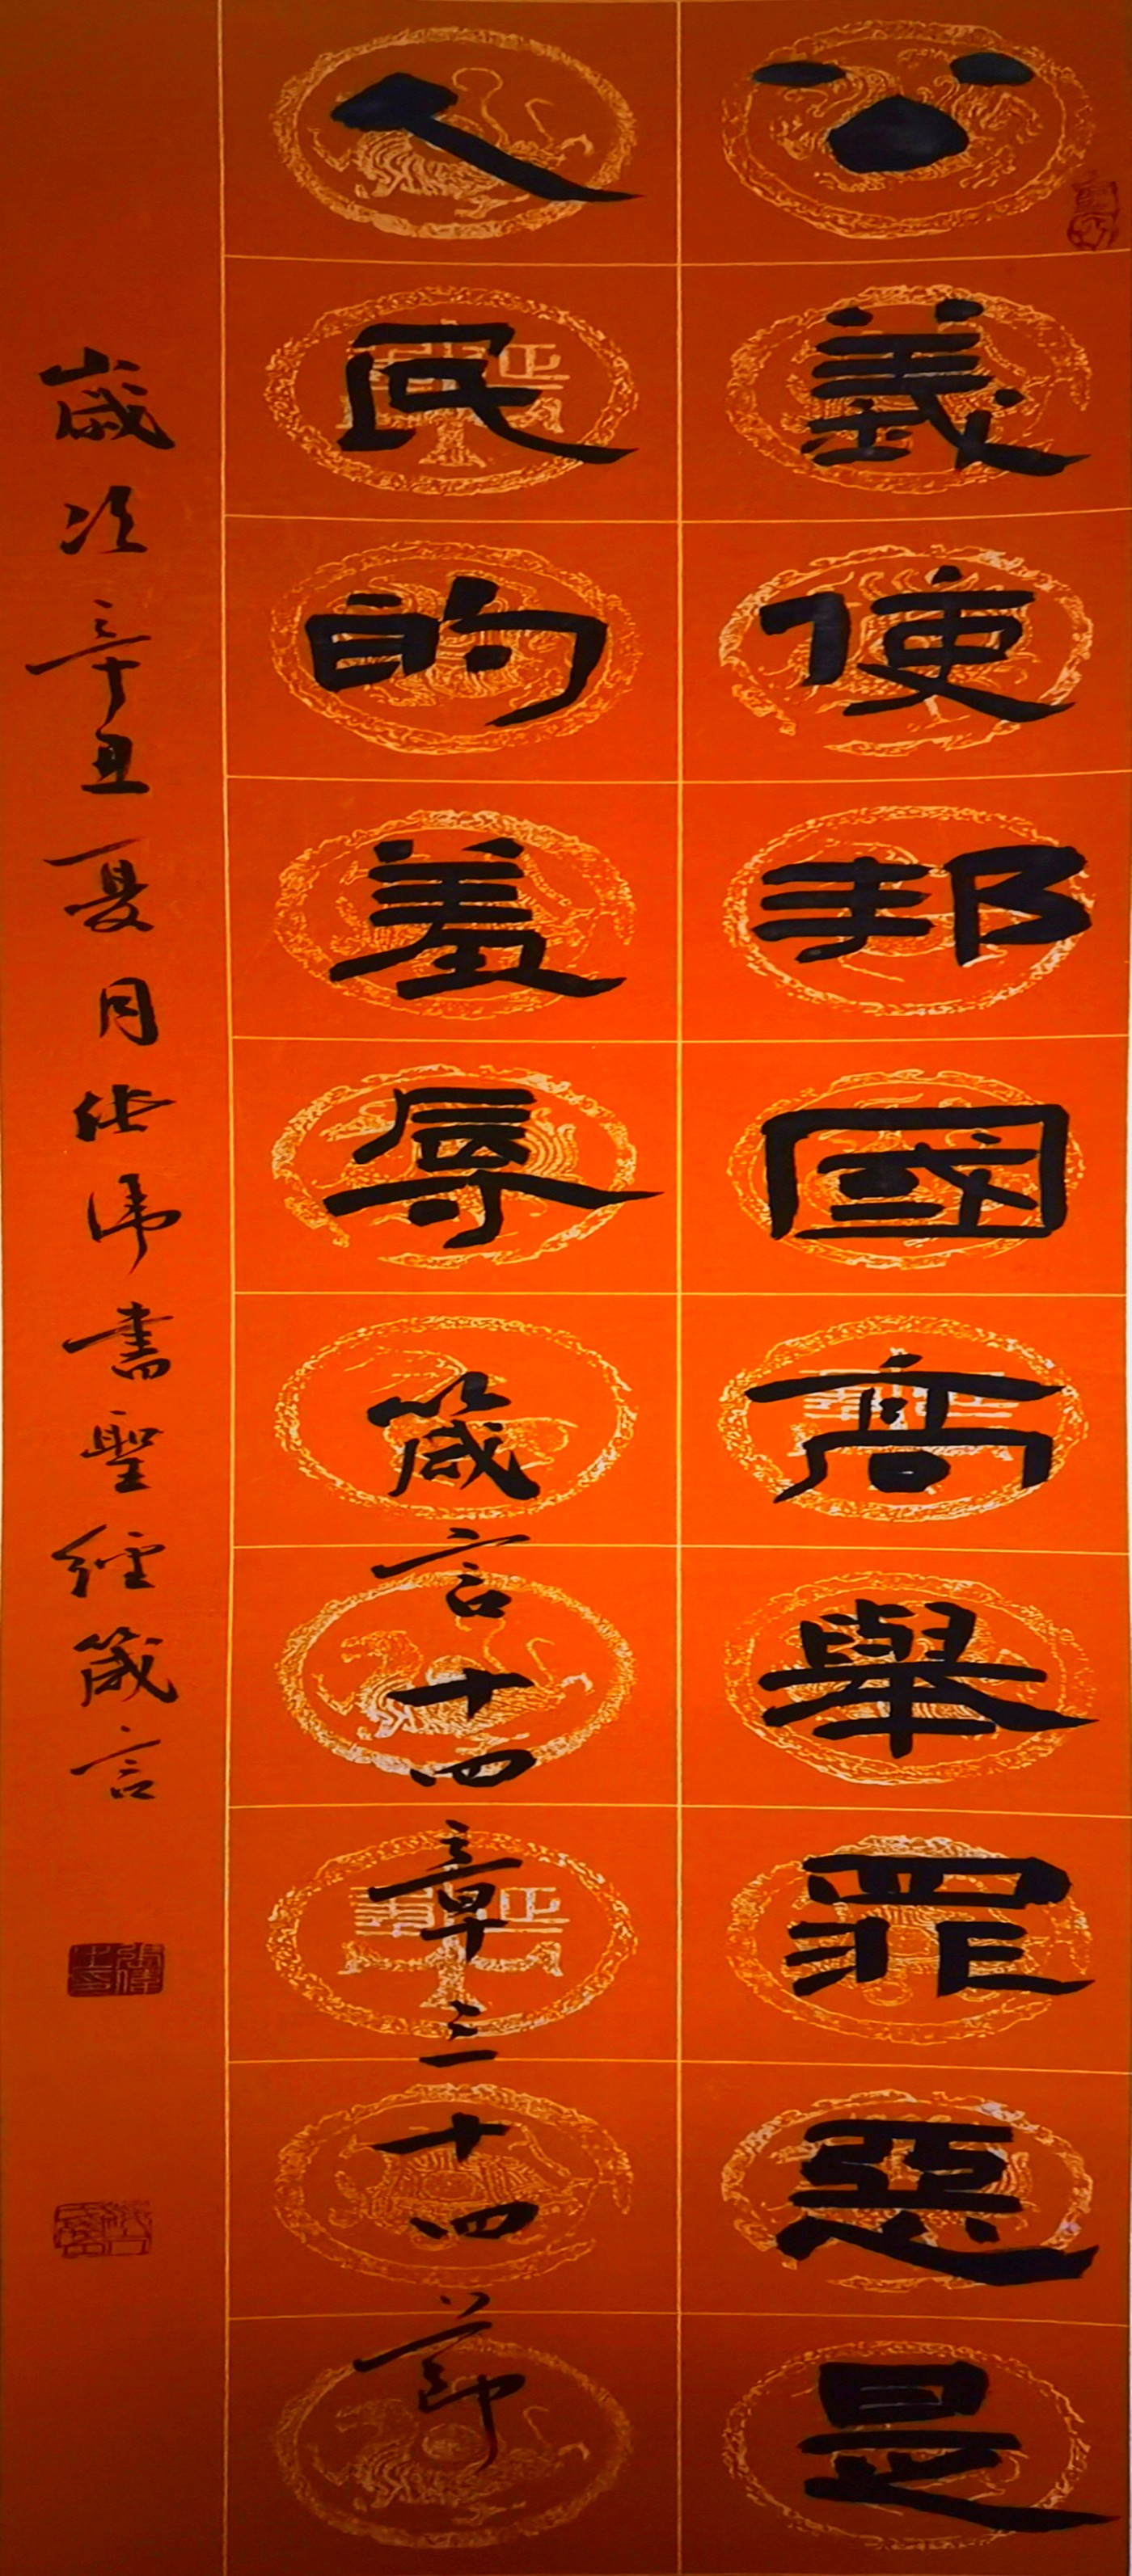 公義使邦國高舉罪惡是
人民的羞辱箴言十四章三十四節
歲次辛丑夏月書聖經箴言